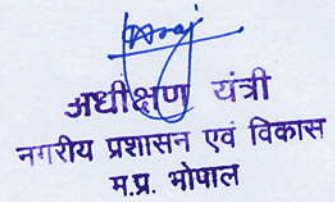 अधीक्षण यंत्री
नगरीय प्रशासन एवं विकास
म.प्र. भोपाल